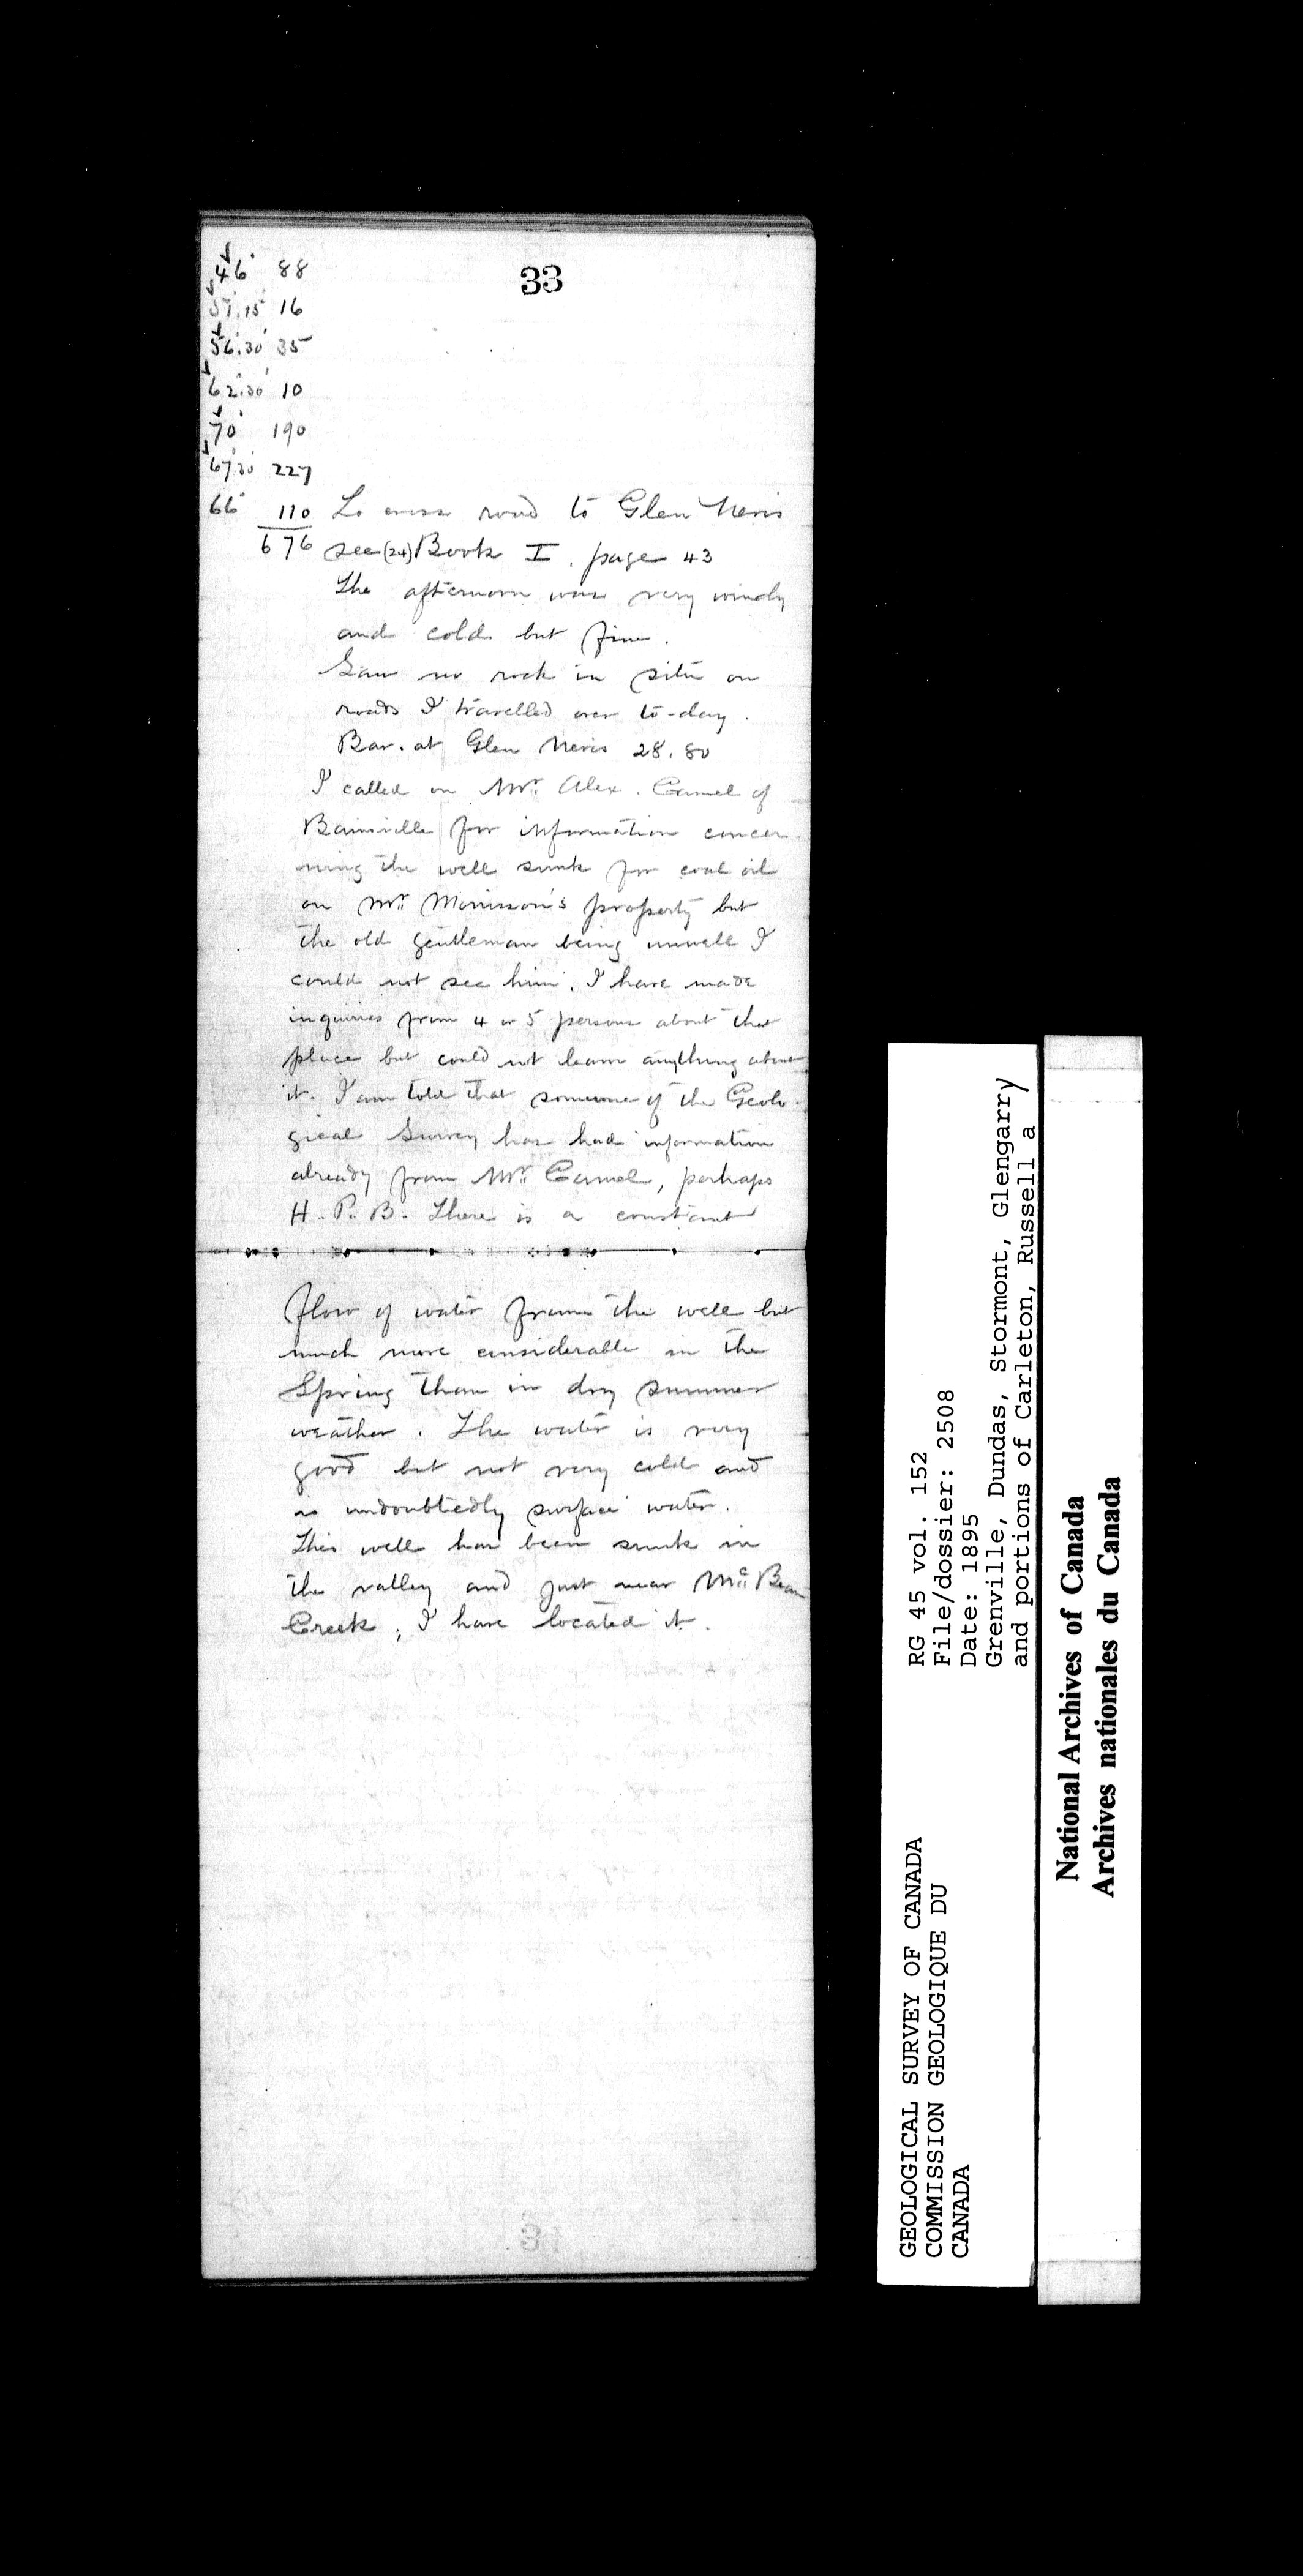 33
46° 88
51°.15' 16
56°.30' 35
62°.30' 10
70° 190
67°.30' 227
66° 110 To cross road to Glen Nevis
676 see (24) Book I. page 43
The afternoon was very windy
and cold but fine.
Saw no rock in situ on
roads I travelled over to-day.
Bar. at Glen Nevis 28.80
I called on Mr. Alex. Camel of
Bainsville for information concer-
ning the well sunk for coal oil
on Mr. Morrisson's property but
the old gentleman being unwell I
could not see him. I have made
inquiries from 4 or 5 persons about that
place but could not learn anything about
it. I am told that someone of the Geolo-
gical Survey has had information
already from Mr. Camel, perhaps
H. P. B. There is a constant
flow of water from the well but
much more considerable in the
Spring than in dry summer
weather. The water is very
good but not very cold and
is undoubtedly surface water.
This well has been sunk in
the valley and just near Mc Bean
Creek; I have located it.
GEOLOGICAL SURVEY OF CANADA
COMMISSION GEOLOGIQUE DU
CANADA
RG 45 vol. 152
File/dossier: 2508
Date: 1895
Grenville, Dundas, Stormont, Glengarry
and portions of Carleton, Russell a
National Archives of Canada
Archives nationales du Canada